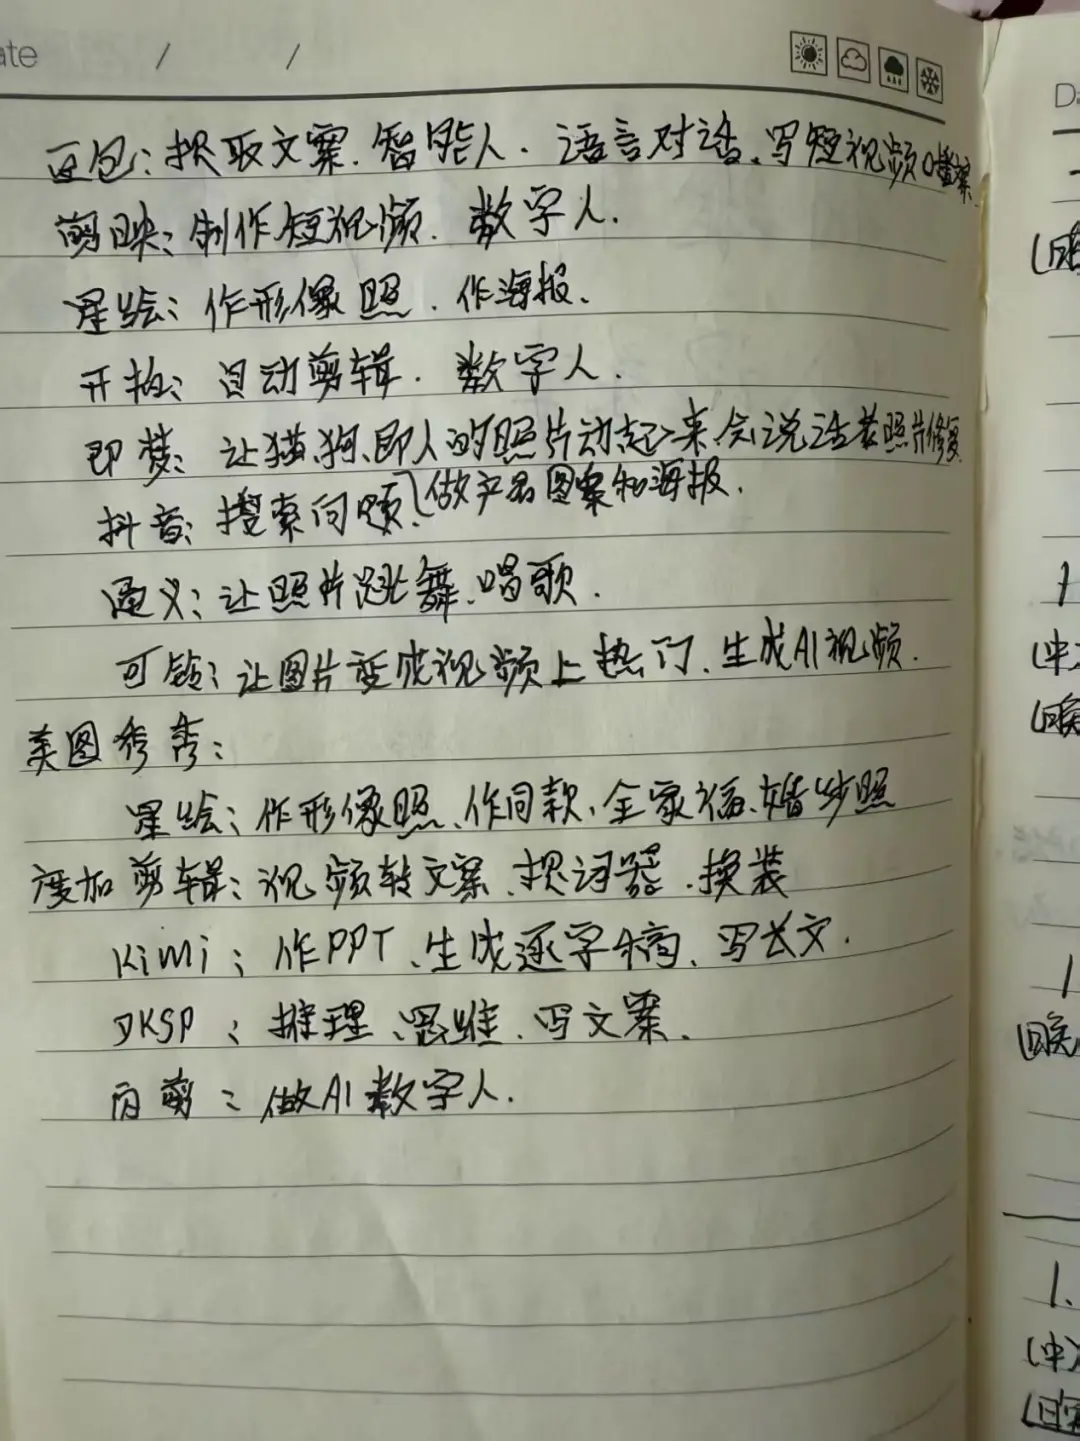 ate / /
豆包：提取文案.智能人.语言对话.写短视频口播案.
剪映：制作短视频.数字人.
星绘：作形像照.作海报.
开拍：自动剪辑.数字人.
即梦：让猫、狗、即人的照片动起来，会说话老照片修复.
做产名图案和海报.
抖音：搜索问题.
通义：让照片跳舞、唱歌.
可铃：让图片变成视频上热门、生成AI视频.
美图秀秀：
星绘：作形像照、作同款、全家福、婚纱照
度加剪辑：视频转文案、提词器.换装
Kimi：作PPT、生成逐字稿、写长文.
DKSP：推理、思维、写文案.
闪剪：做AI数字人.